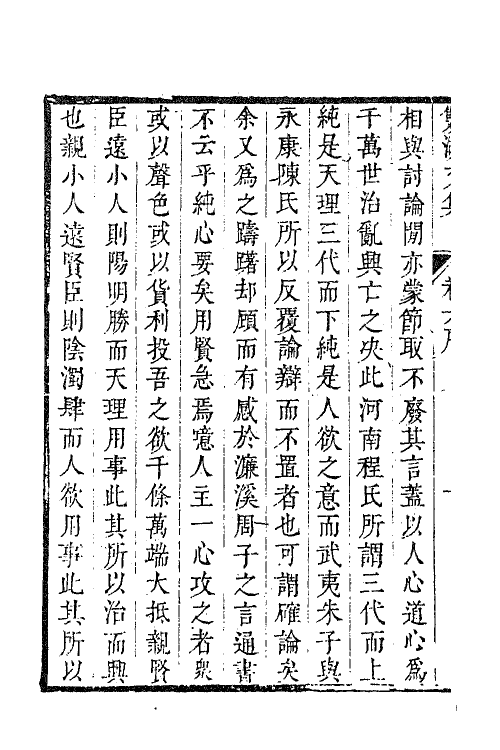 相與討論閒亦蒙節取不廢其言蓋以人心道心爲
千萬世治亂興亡之決此河南程氏所謂三代而上
純是天理三代而下純是人欲之意而武夷朱子與
永康陳氏所以反覆論辯而不置者也可謂確論矣
余又爲之躊躇却顧而有感於濂溪周子之言通書
不云乎純心要矣用賢急焉噫人主一心攻之者衆
或以聲色或以貨利投吾之欲千條萬端大抵親賢
臣遠小人則陽明勝而天理用事此其所以治而興
也親小人遠賢臣則陰濁肆而人欲用事此其所以